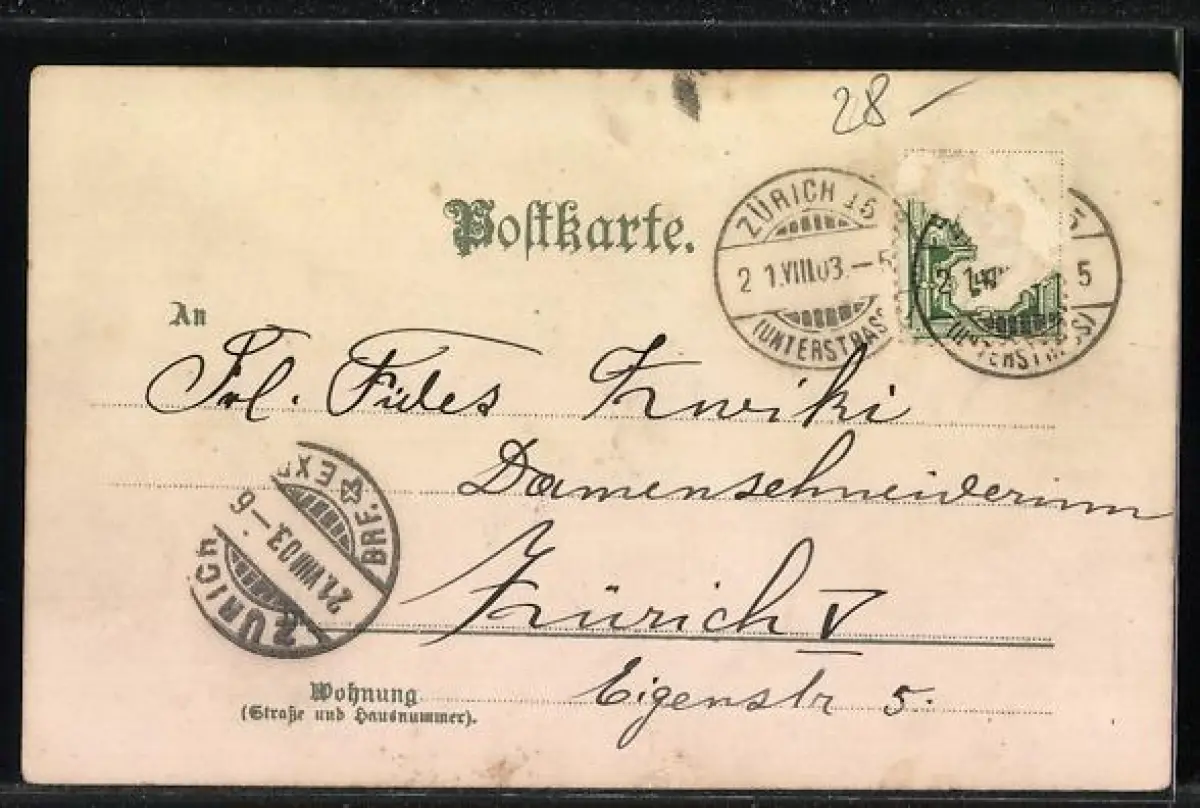 28 —
Postkarte.
ZÜRICH 15
2 1.VIII.03.—5
(UNTERSTRASS
5
2 1. 5
(UNTERSTRASS)
An
Frl. Fides Zwiki
Damenschneiderin
BRF. EXP
21.VIII.03.—6
ZÜRICH
Zürich V
Wohnung
Eigenstr 5.
(Straße und Hausnummer).